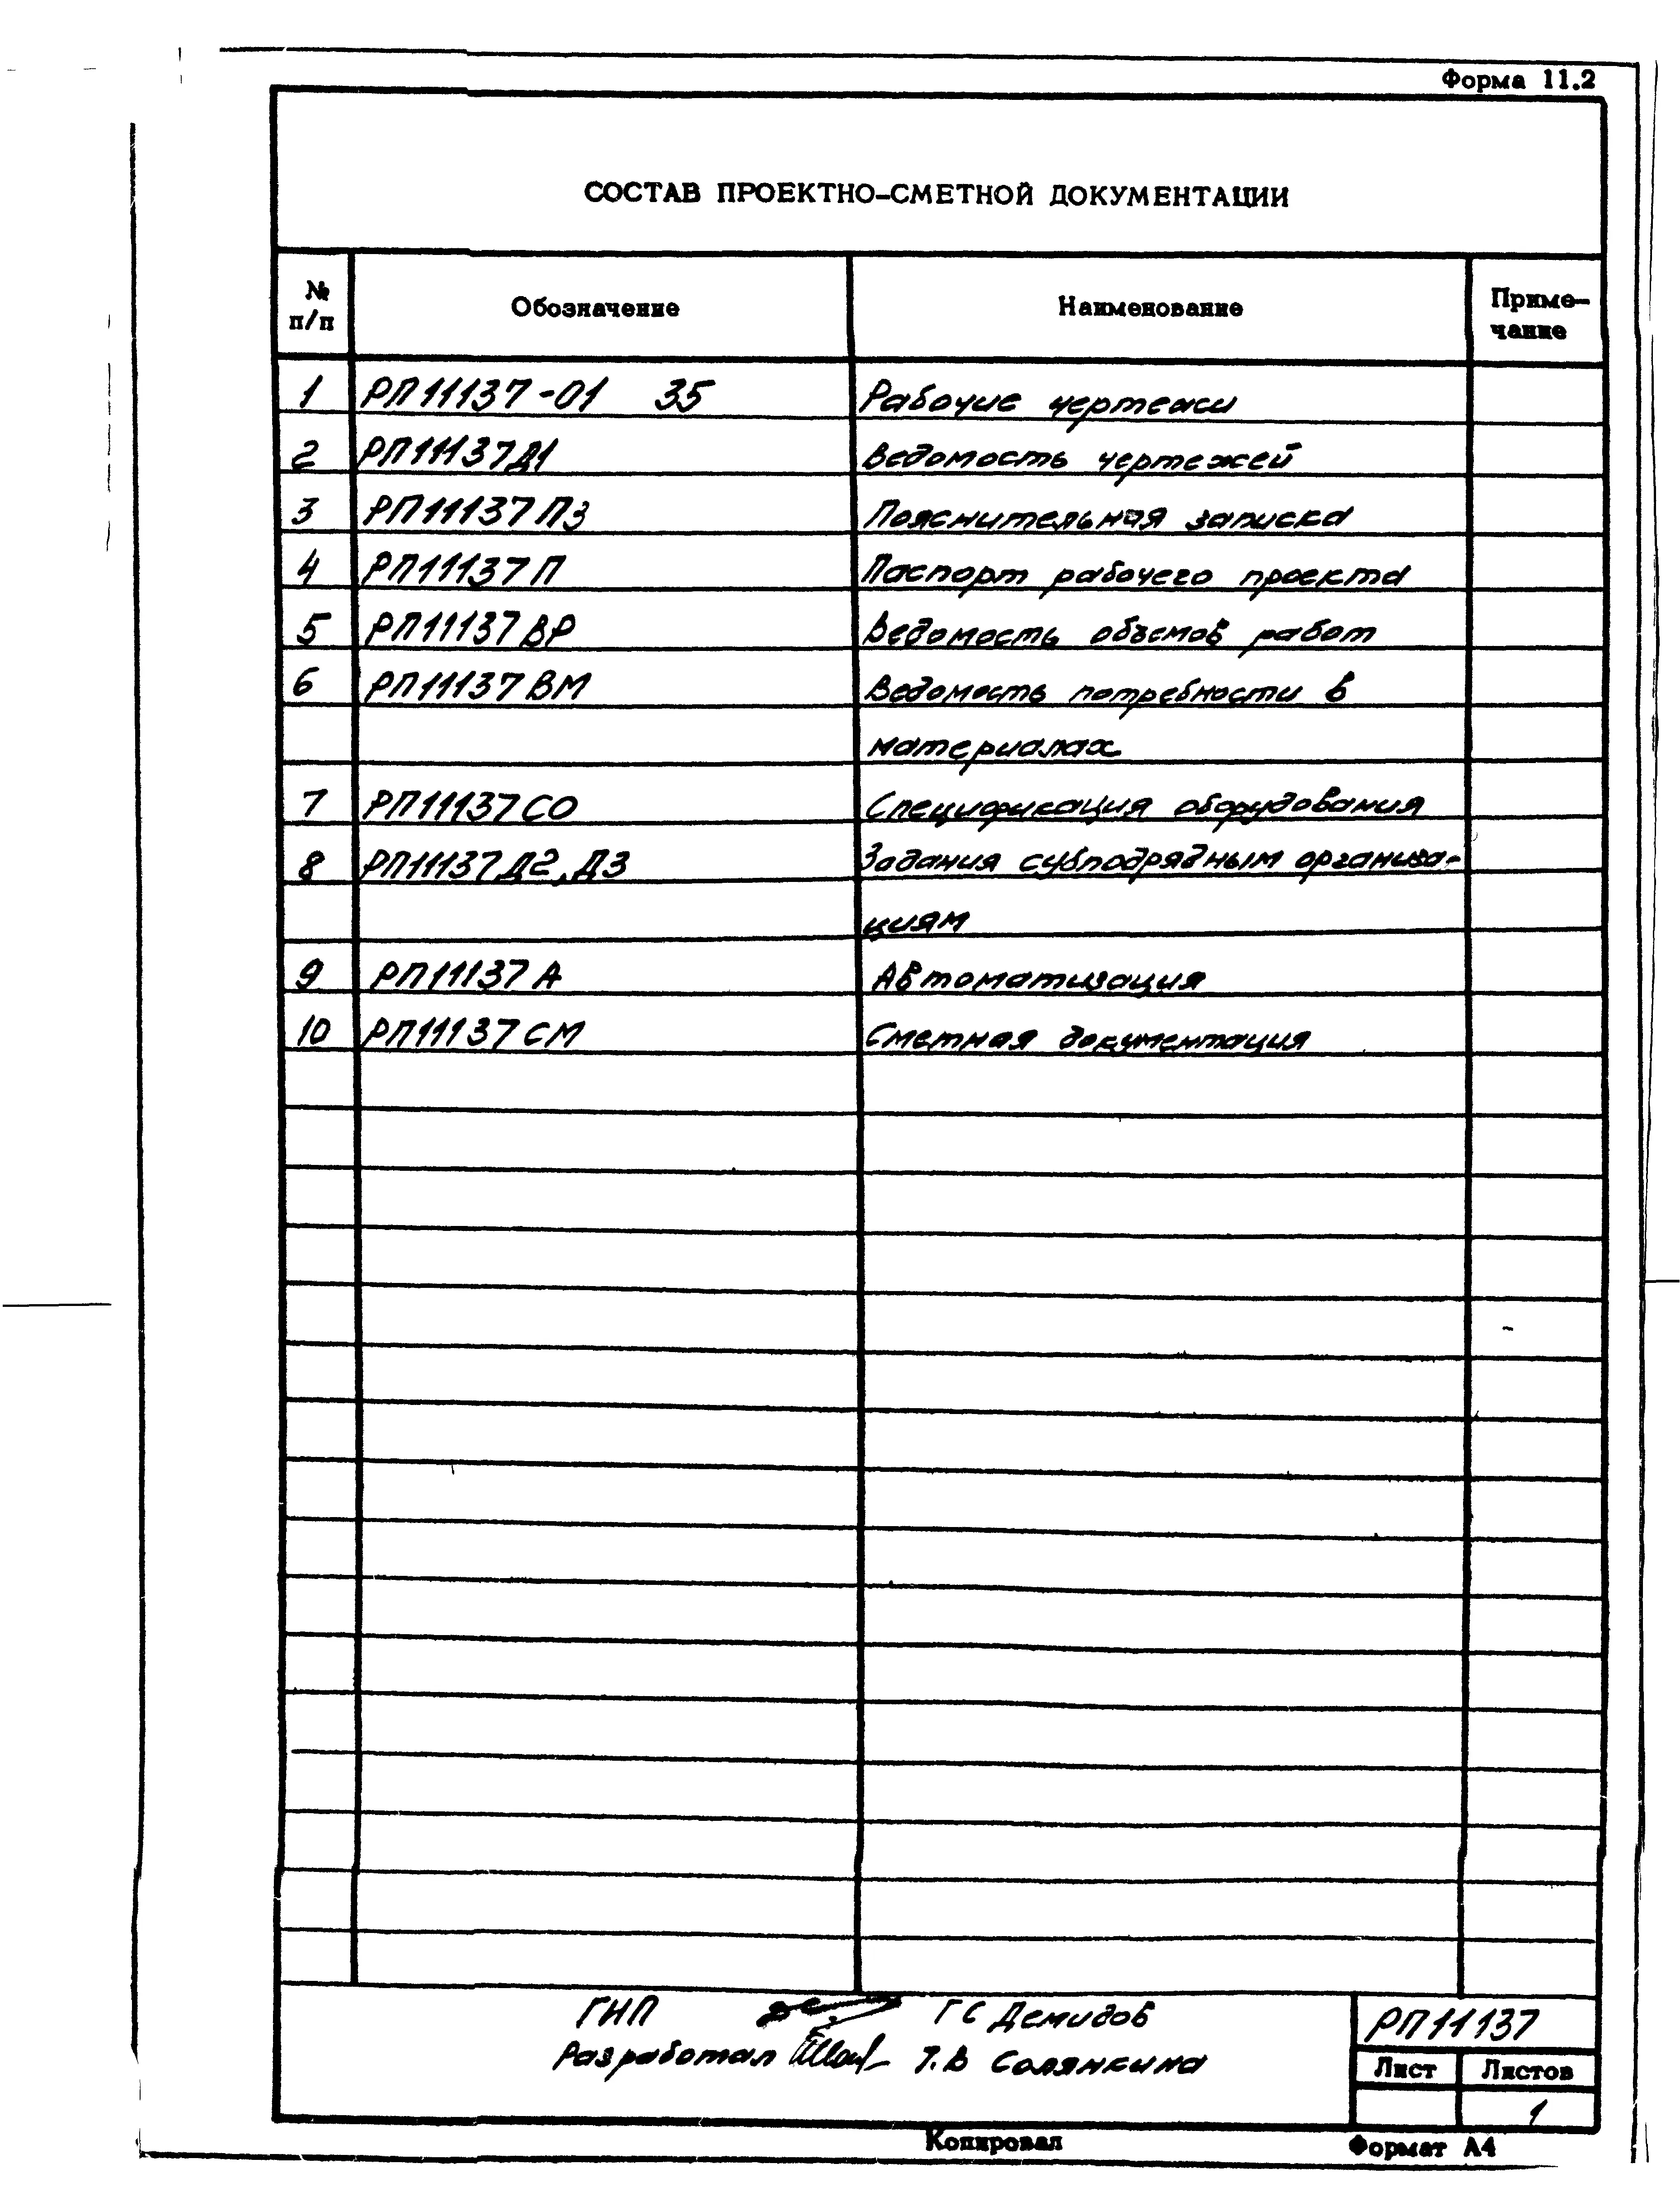 Форма 11.2
СОСТАВ ПРОЕКТНО-СМЕТНОЙ ДОКУМЕНТАЦИИ
№ п/п Обозначение Наименование Приме-чание
1 РП11137-01 35 Рабочие чертежи
2 РП11137Д1 Ведомость чертежей
3 РП11137ПЗ Пояснительная записка
4 РП11137П Паспорт рабочего проекта
5 РП11137ВР Ведомость объемов работ
6 РП11137ВМ Ведомость потребности в
материалах
7 РП11137СО Спецификация оборудования
8 РП11137Д2,Д3 Задания субподрядным организа-
циям
9 РП11137А Автоматизация
10 РП11137СМ Сметная документация
ГИП Г С Демидов
РП11137
Разработал Т.В Солянкина
Лист Листов
1
Копировал Формат А4